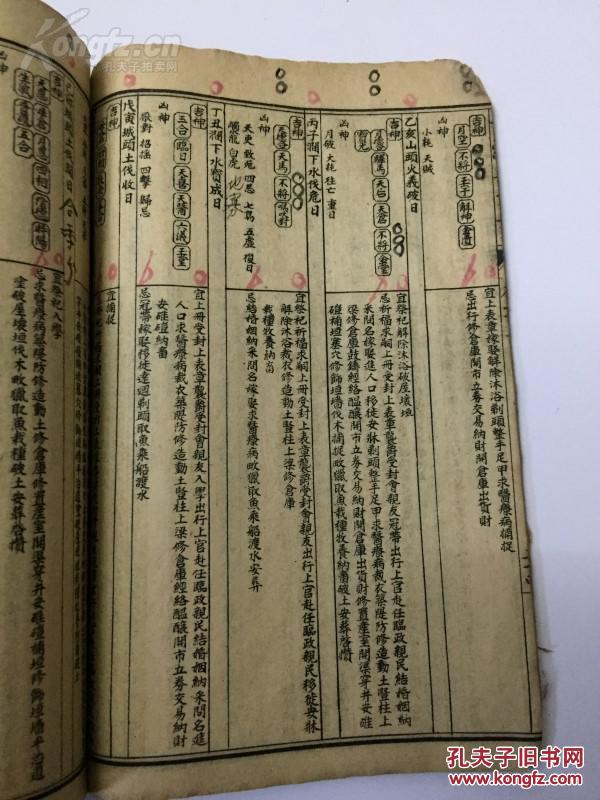 吉神 月空 不將 壬子 解神 金匱
凶神 小耗 天賊
宜上表章嫁娶解除沐浴剃頭整手足甲求醫療病捕捉
忌出行修倉庫開市立券交易納財開倉庫出貨財
乙亥山頭火義破日
吉神 月德 驛馬 天后 天倉 不將 金堂
凶神 月破 大耗 往亡 重日
宜祭祀解除沐浴破屋壞垣
忌祈福求嗣上冊受封上表章襲爵受封會親友冠帶出行上官赴任臨政親民結婚姻納
采問名嫁娶進人口移徙安牀剃頭整手足甲求醫療病裁衣築隄防修造動土豎柱上
梁修倉庫鼓鑄經絡醞釀開市立券交易納財開倉庫出貨財修置產室開渠穿井安碓
磑補垣塞穴修飾垣墻伐木捕捉畋獵取魚栽種牧養納畜破土安葬啓攢
丙子澗下水伐危日
吉神 天馬 不將 鳴吠對
凶神 天吏 致死 四忌 七鳥 五虛 復日
觸龍 白虎
宜祭祀祈福求嗣上冊受封上表章襲爵受封會親友出行上官赴任臨政親民移徙安牀
解除沐浴裁衣修造動土豎柱上梁修倉庫
栽種牧養納畜
忌結婚姻納采問名嫁娶求醫療病畋獵取魚乘船渡水安葬
丁丑澗下水寶成日
吉神 三合 臨日 天喜 天醫 六儀 玉堂
凶神 厭對 招搖 四擊 歸忌
宜上冊受封上表章襲爵受封會親友入學出行上官赴任臨政親民結婚姻納采問名進
人口求醫療病裁衣築隄防修造動土豎柱上梁修倉庫經絡醞釀開市立券交易納財
安碓磑納畜
忌冠帶嫁娶移徙遠迴剃頭取魚乘船渡水
戊寅城頭土伐收日
吉神
宜捕捉
凶神
吉神
五合
宜祭祀入學
忌求醫療病築隄防修造動土修倉庫修置產室開渠穿井安碓磑補垣修飾垣墻平治道
塗破屋壞垣伐木畋獵取魚栽種破土安葬啓攢
Kongfz.cn
孔夫子拍卖网
孔夫子旧书网
www.kongfz.com